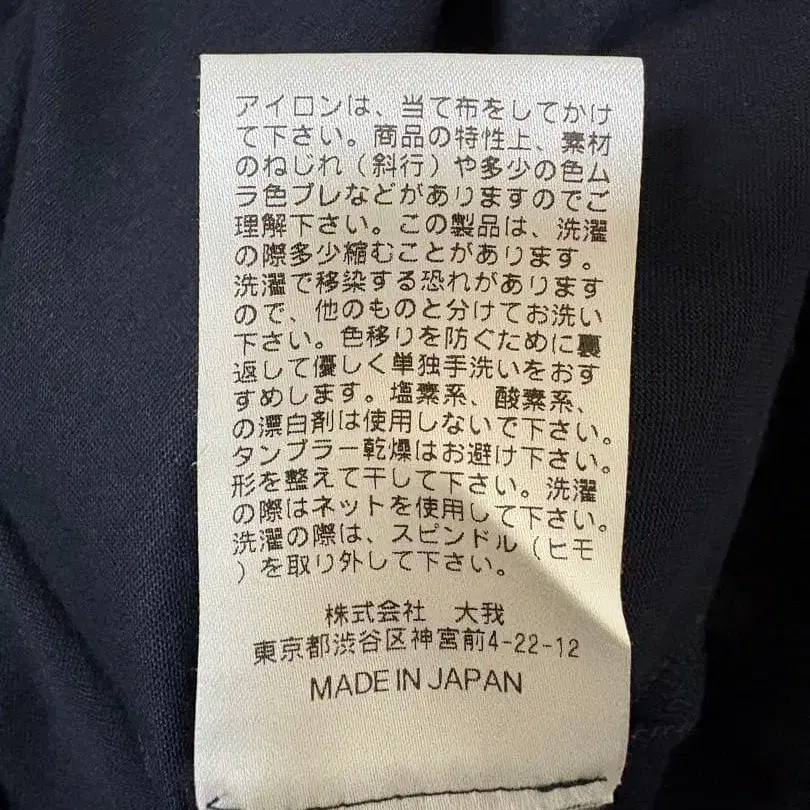 アイロンは、当て布をしてかけ
て下さい。商品の特性上、素材
のねじれ（斜行）や多少の色ム
ラ色ブレなどがありますのでご
理解下さい。この製品は、洗濯
の際多少縮むことがあります。
洗濯で移染する恐れがあります
ので、他のものと分けてお洗い
下さい。色移りを防ぐために裏
返して優しく単独手洗いをおす
すめします。塩素系、酸素系、
の漂白剤は使用しないで下さい。
タンブラー乾燥はお避け下さい。
形を整えて干して下さい。洗濯
の際はネットを使用して下さい。
洗濯の際は、スピンドル（ヒモ
）を取り外して下さい。
株式会社　大我
東京都渋谷区神宮前4-22-12
MADE IN JAPAN